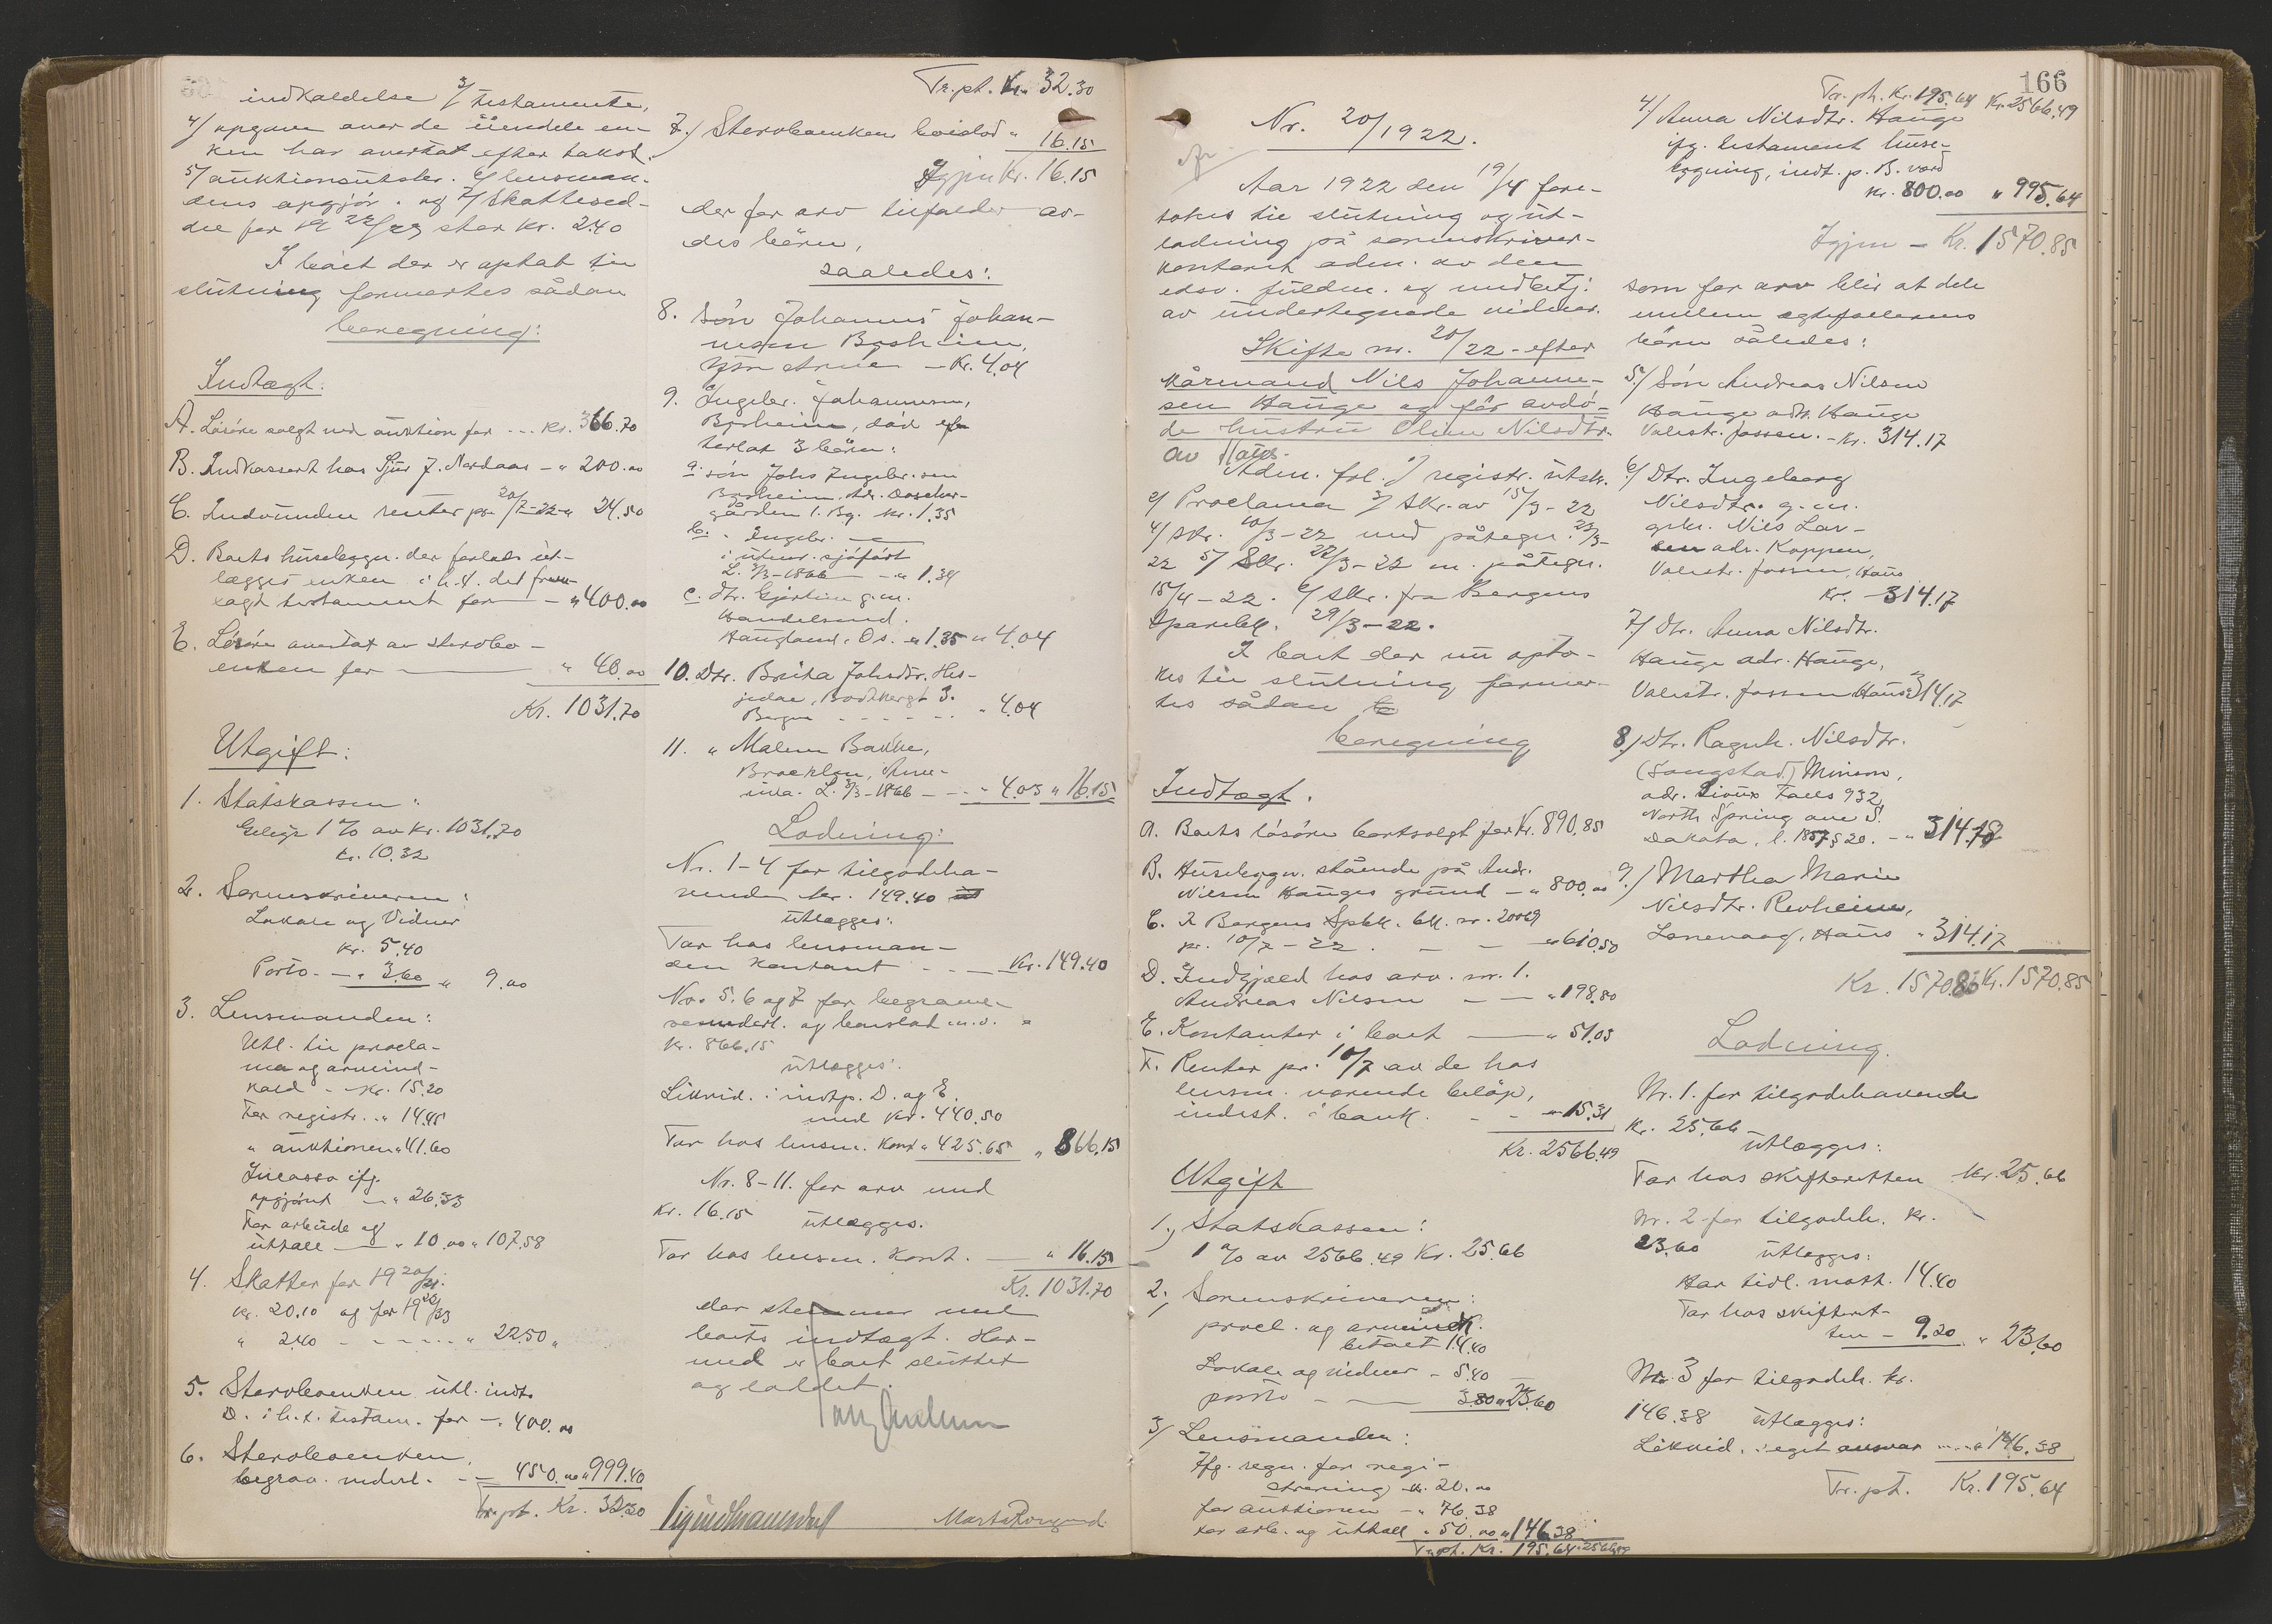 indkaldelse 3/ testamente,
4/ opgave over de üendele en-
ken har overtat efter takst.
5/ auktionsutskr. 6/ lensman-
dens opgjör. og 7/ Skattesed-
del for 19 22/23 stor kr. 2.40
I boet der er optat til
slutning formertes sådan
beregning:
Indtægt:
A. Lösöre solgt ved auktion for ... Kr. 366.70
B. Indkassert hos Sjur J. Nordaas - " 200.00
C. Indvundne renter pr. 20/7-22 - " 24.50
D. Boets husebygn. der forlods ut-
lægges enken i h.t. det frem-
lagte testament for - " 400.00
E. Lösöre overtat av stervbo-
enken for — " 40.00
Kr. 1031.70
Utgift:
1. Statskassen:
Gebyr 1 % av kr. 1031.70
kr. 10.32
2. Sorenskriveren:
Lokale og Vidner
kr. 5.40
Porto - — " 3.60 " 9.00
3. Lensmanden:
Utl. til procla-
ma og arveind-
kald - Kr. 15.20
For registr. .. " 14.45
" auktionen " 41.60
Incasso ifg.
opgjöret — " 26.33
For arbeide og
uthall — " 10.00 " 107.58
4. Skatter for 19 20/21:
kr. 20.10 og for 19 22/23
" 2.40 - - - - " 22.50 "
5. Stervboenken utl. indt.
D. i h.t. testam. for - " 400.00
6. Stervboenken,
begrav. underl. - — 450.00 " 999.40
Tr.pt. Kr. 32.30
Tr.pt. Kr. 32.30
7./ Stervboenken boslod " 16.15
Igjen Kr. 16.15
der for arv tilfalder av-
dis börn,
saaledes:
8. Sön Johannes Johan-
nesen Borheim,
- Kr. 4.04
9. Ingebr. Johannesen,
Borheim, död efter-
latt 3 börn:
a. sön Johs Ingebr.sen
Borheim, Adr.
gården 1. Bg. kr. 1.35
b. " Ingebr. —
i utenr. sjöfart
L. 3/3-1866 — - " 1.34
c. dtr. g.m.
Handelsmd.
Haugland, Os. " 1.35 " 4.04
10. Dtr. Brita Johsdtr. Hes-
jedae,
Bergen - - - - - " 4.04
11. " Malene Bakke,
Brooklyn, Ame-
rika. L. 3/3-1866 - - - " 4.03 " 16.15
Lodning:
Nr. 1-4 for tilgodeha-
vende kr. 149.40
utlægges:
Tar hos lensman-
den kontant - - — Kr. 149.40
No. 5. 6 og 7 for begravel-
sesunderl. og boslod m.v. =
kr. 866.15
utlægges:
Likvid. i indtp. D. og E.
med kr. 440.50
Tar hos lensm. kont " 425.65 " 866.15
Nr. 8-11. for arv med
kr. 16.15 utlægges.
Tar hos lensm. kont. — " 16.15
Kr. 1031.70
der stemmer med
boets indtægt. Her-
med er boet sluttet
og loddet.
166
Nr. 20/1922.
Aar 1922 den 19/4 fore-
tokes til slutning og ut-
lodning på sorenskriver-
kontoret adm. av den
edsv. fuldm. og
av undertegnede vidner.
Skifte nr. 20/22 - efter
kårmand Nils Johanne-
sen Hauge og för avdö-
de hustru Oline Nilsdtr.
av Haus.
Adm. frl. 1/ registr. utskr.
2/ Proclama 3/ Skr. av 15/3-22
4/ skr. 10/3-22 med påtegn. 23/3-
22 5/ Skr. 22/3-22 m. påtegn.
15/4-22. 6/ Skr. fra Bergens
Sparebk. 29/3-22.
I boet der nu opto-
kes til slutning former-
tes sådan
beregning
Indtægt.
A. Boets lösöre bortsolgt for Kr. 890.85
B. Husebygn. stående på Andr.
Nilsen Hauges grund — " 800.00
C. I Bergens Spbk. bk. nr. 20069
pr. 10/7-22. — — " 610.50
D. Indgjæld hos arv. nr. 1.
Andreas Nilsen — — " 198.80
E. Kontanter i boet — " 51.03
F. Renter pr. 10/7 av de hos
lensm. værende belöp,
indest. i bank. - - " 15.31
Kr. 2566.49
Utgift
1., Statskassen:
1 % av 2566.49 Kr. 25.66
2., Sorenskriveren:
procl. og arveindk.
betalt 14.40
Lokale og vidner - 5.40
porto — 3.80 " 23.60
3/ Lensmanden:
Ifg. regn. for regi-
strering kr. 20.00
for auktionen - " 76.38
for arb. og uthall " 50.00 " 146.38
Tr.pt. Kr. 195.64 - 2566.49
Tr.pt. Kr. 195.64 Kr. 2566.49
4/ Anna Nilsdtr. Hauge
ifg. testament huse-
bygning, indt. p. B. værd
kr. 800.00 " 995.64
Igjen - Kr. 1570.85
som for arv blir at dele
mellem egtefællernes
börn således:
5/ Sön Andreas Nilsen
Hauge adr. Hauge
Valestr.fossen. - Kr. 314.17
6/ Dtr. Ingeborg
Nilsdtr. g.m.
grbr. Nils Lar-
sen adr. Koppen,
Valestr.fossen, Haus
Kr. - 314.17
7/ Dtr. Anna Nilsdtr.
Hauge adr. Hauge,
Valestr.fossen Haus " 314.17
8./ Dtr. Ragnh. Nilsdtr.
(Songstad)
adr. Sioux Falls 932,
North Spring ave S.
Dakota, l. 1857 § 20. - " 314.18
9./ Martha Marie
Nilsdtr. Revheim,
Lonevaag, Haus " 314.17
Kr. 1570.86 Kr. 1570.85
Lodning.
Nr. 1. for tilgodehavende
kr. 25.66
utlægges:
Tar hos skifteretten kr. 25.66
Nr. 2 for tilgodeh. kr.
23.60 utlægges:
Har tidl. mott. 14.40
Tar hos skifteret-
ten - 9.20 " 23.60
Nr. 3 for tilgodeh. kr.
146.38 utlægges:
Likvid. i eget ansvar ... " 146.38
Tr.pt. Kr. 195.64